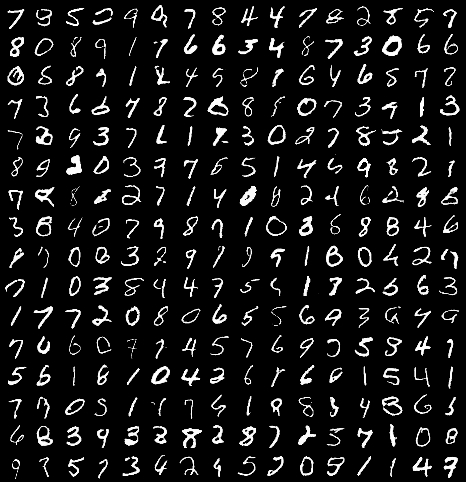 7 3 5 0 9 2 7 8 4 4 7 8 2 8 5 9
8 0 8 9 1 7 6 6 3 4 8 7 3 0 6 6
0 5 8 9 1 2 4 5 8 1 6 4 6 5 7 2
7 3 6 6 7 8 2 0 8 5 0 7 3 9 1 3
7 2 9 3 7 2 1 7 3 0 2 7 8 5 2 1
8 9 2 0 3 9 7 6 5 1 4 5 9 8 2 1
7 2 8 2 2 7 1 4 0 8 2 2 6 2 8 8
3 8 4 0 7 9 8 7 1 0 8 6 8 8 4 6
9 7 0 0 3 2 9 9 9 5 1 8 0 4 2 7
7 1 0 3 8 4 4 7 5 4 1 3 2 5 6 3
1 7 7 2 0 8 0 6 5 5 6 9 3 9 4 9
7 6 6 0 7 7 4 5 7 6 9 9 5 8 4 1
5 6 1 8 1 0 4 2 6 1 6 6 1 5 4 1
7 7 0 5 1 1 7 5 1 8 8 3 4 8 6 3
6 8 3 9 3 2 8 2 8 7 2 5 7 1 0 8
9 7 5 7 3 4 2 4 5 2 0 5 1 1 4 7